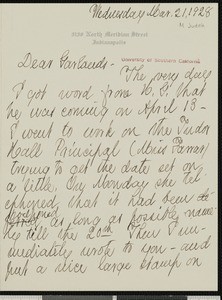 Wednesday Mar. 21, 1928
Indianapolis
Dear Garlands -
The very day
I got word from
he was coming on April 13 -
I went to work on the Tudor
Hall Principal (Miss
trying to get the date set on
a little. On Monday she tel-
ephoned, that it had been de-
as long as possible
till the 20th. Then I im-
mediately wrote to you - and
put a nice large stamp on